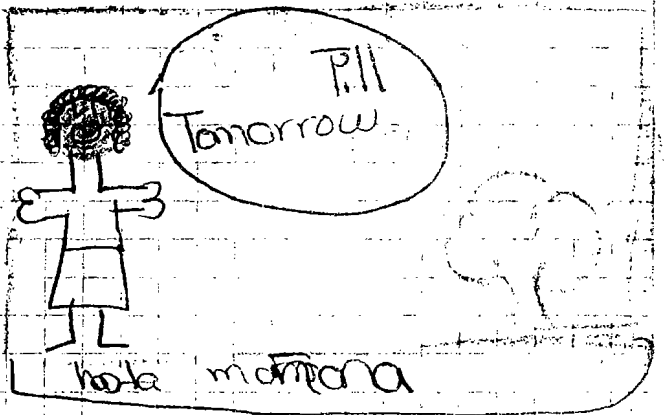 Till
Tomorrow
hasta mañana